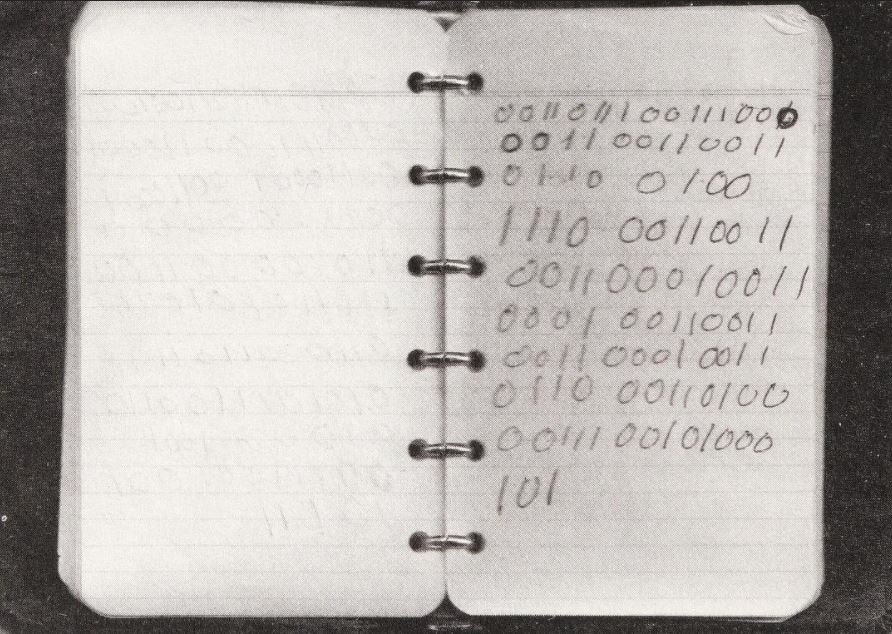 00110111 00111000
0011 00110011
0110 0100
1110 00110011
0011 00010011
0001 00110011
0011 0001 0011
0110 00110100
00111 00101000
101